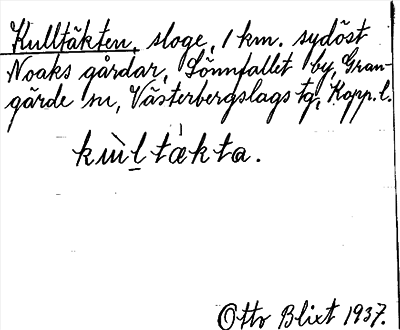 Kulltäkten, sloge, 1 km. sydöst
Noaks gårdar, Sönnfallet by, Gran-
gärde sn, Västerbergslags tg, Kopp.l.
kùl̲tàkta.
Otto Blixt 1937.